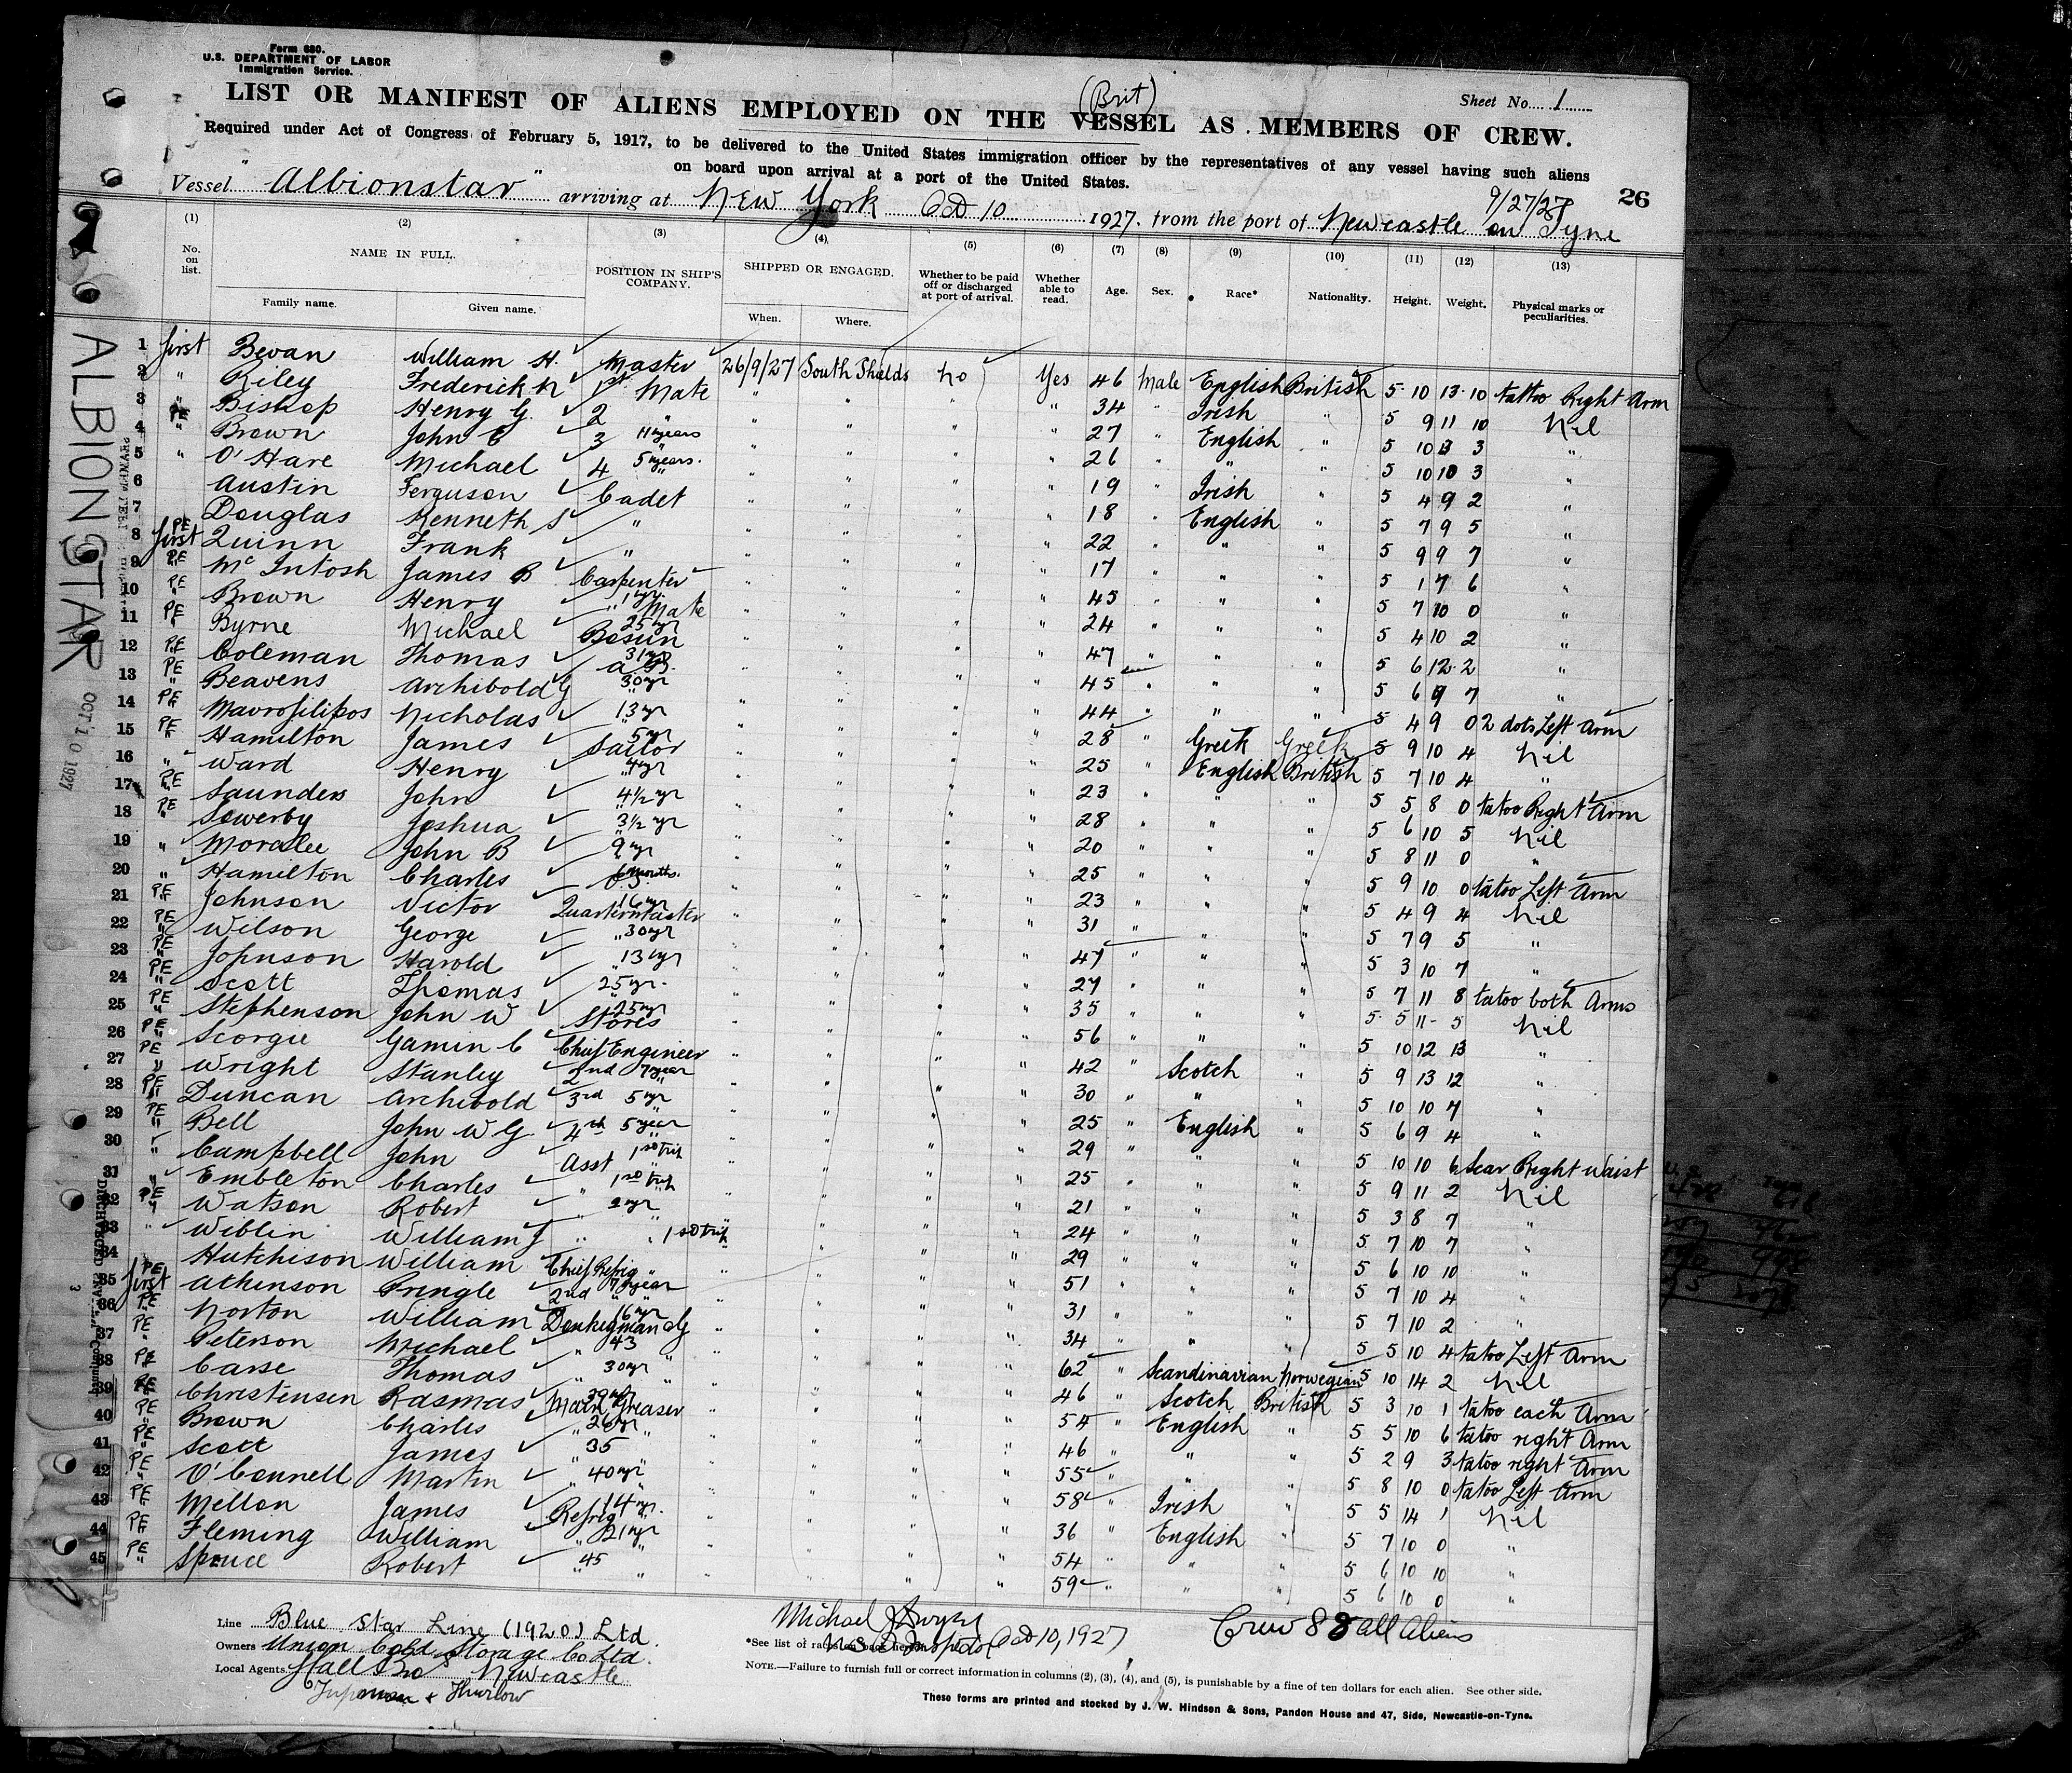 Form 680.
U.S. DEPARTMENT OF LABOR
Immigration Service.
(Brit)
Sheet No. 1
LIST OR MANIFEST OF ALIENS EMPLOYED ON THE VESSEL AS MEMBERS OF CREW.
Required under Act of Congress of February 5, 1917, to be delivered to the United States immigration officer by the representatives of any vessel having such aliens
on board upon arrival at a port of the United States.
9/27/27
26
Vessel "Albionstar" arriving at New York Oct 10 1927. from the port of Newcastle on Tyne
(1) (2) (3) (4) (5) (6) (7) (8) (9) (10) (11) (12) (13)
No. on list. NAME IN FULL. POSITION IN SHIP'S COMPANY. SHIPPED OR ENGAGED. Whether to be paid off or discharged at port of arrival. Whether able to read. Age. Sex. Race* Nationality. Height. Weight. Physical marks or peculiarities.
Family name. Given name. When. Where.
1 first Bevan William H. Master 26/9/27 South Shields No Yes 46 Male English British 5 10 13 10 tattoo Right Arm
2 " Riley Frederick N 1st Mate " " " " 34 " Irish " 5 9 11 10 Nil
3 " Bishop Henry G. 2 " " " " " 27 " English " 5 10 13 3 "
4 PE " Brown John E 3 11 years " " " " 26 " " " 5 10 10 3 "
5 " O'Hare Michael 4 5 years " " " " 19 " Irish " 5 4 9 2 "
6 Austin Ferguson Cadet " " " " 18 " English " 5 7 9 5 "
7 Douglas Kenneth S " " " " " 22 " " " 5 9 9 7 "
8 PE first Quinn Frank " " " " " 17 " " " 5 1 7 6 "
9 PE " McIntosh James B Carpenter " " " " 45 " " " 5 7 10 0 "
10 PE " Brown Henry " Mate 1 yr " " " " 24 " " " 5 4 10 2 "
11 PE " Byrne Michael Bosun 25 yr " " " " 47 " " " 5 6 12 2 "
12 PE " Coleman Thomas A B. 31 yr " " " " 45 " " " 5 6 9 7 "
13 PE " Beavens Archibold G " 30 yr " " " " 44 " " " 5 4 9 0 2 dots Left Arm
14 PE " Mavrofilipos Nicholas " 13 yr " " " " 28 " Greek Greek 5 9 10 4 Nil
15 PE " Hamilton James Sailor 5 yr " " " " 25 " English British 5 7 10 4 "
16 " Ward Henry " 4 yr " " " " 23 " " " 5 5 8 0 tatoo Right Arm
17 PE " Saunders John " 4½ yr " " " " 28 " " " 5 6 10 5 Nil
18 PE " Sowerby Joshua " 3½ yr " " " " 20 " " " 5 8 11 0 "
19 " Moralee John B " 9 yr " " " " 25 " " " 5 9 10 0 tatoo Left Arm
20 " Hamilton Charles O.S. 6 months. " " " " 23 " " " 5 4 9 4 Nil
21 PE Johnson Victor Quartermaster 16 yr " " " " 31 " " " 5 7 9 5 "
22 PE " Wilson George " 30 yr " " " " 47 " " " 5 3 10 7 "
23 PE " Johnson Harold " 13 yr " " " " 27 " " " 5 7 11 8 tatoo both Arms
24 PE " Scott Thomas " 25 yr. " " " " 35 " " " 5 5 11 5 Nil
25 PE " Stephenson John W Stores 25 yr " " " " 56 " " " 5 10 12 13 "
26 PE " Scorgie Gamin C Chief Engineer " " " " 42 " Scotch " 5 9 13 12 "
27 PE " Wright Stanley 2nd 7 year " " " " 30 " " " 5 10 10 7 "
28 PE " Duncan Archibold 3rd 5 yr " " " " 25 " English " 5 6 9 4 "
29 PE " Bell John W G 4th 5 year " " " " 29 " " " 5 10 10 6 Scar Right Waist
30 " Campbell John Asst 1st trip " " " " 25 " " " 5 9 11 2 Nil
31 " Embleton Charles " 1st trip " " " " 21 " " " 5 3 8 7 "
32 PE " Watson Robert " 2 yr " " " " 24 " " " 5 7 10 7 "
33 " Wiblin William J " " 1st trip " " " " 29 " " " 5 6 10 10 "
34 Hutchison William Chief Refrig " " " " 51 " " " 5 7 10 4 "
35 PE first Athinson Pringle 2nd " 7 year " " " " 31 " " " 5 7 10 2 "
36 PE " Norton William Donkeyman 16 yr " " " " 34 " " " 5 5 10 4 tatoo Left Arm
37 PE " Peterson Michael " 43 " " " " 62 " Scandinavian Norwegian 5 10 14 2 Nil
38 PE " Casse Thomas " 30 yr " " " " 46 " Scotch British 5 3 10 1 tatoo each Arm
39 PE Christensen Rasmas Main Greaser " " " " 54 " English " 5 5 10 6 tatoo right Arm
40 PE " Brown Charles " 26 yr " " " " 46 " " " 5 2 9 3 tatoo right Arm
41 PE " Scott James " 35 " " " " " 55 " " " 5 8 10 0 tatoo Left Arm
42 PE " O'Connell Martin " 40 yr " " " " 58 " Irish " 5 5 14 1 Nil
43 PE " Mellon James Refrig 14 yr. " " " " 36 " English " 5 7 10 0 "
44 PE " Fleming William " 21 yr " " " " 54 " " " 5 6 10 10 "
45 PE " Spruce Robert " 45 " " " " " 59 " " " 5 6 10 0 "
ALBIONSTAR
OCT 10 1927
Line Blue Star Line (1920) Ltd.
Owners Union Cold Storage Co Ltd.
Local Agents Hall Bros Newcastle
& Thurlow
Michael J
Oct 10, 1927
Crew 88 all Aliens
*See list of races on back hereof.
NOTE.—Failure to furnish full or correct information in columns (2), (3), (4), and (5), is punishable by a fine of ten dollars for each alien. See other side.
These forms are printed and stocked by J. W. Hindson & Sons, Pandon House and 47, Side, Newcastle-on-Tyne.